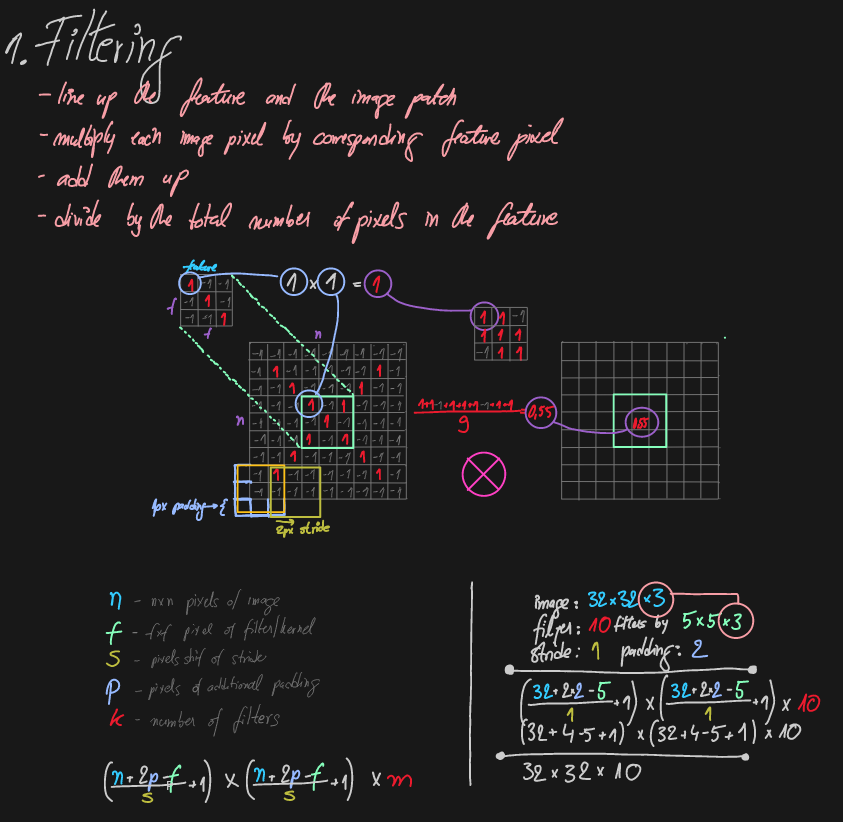 1. Filtering
- line up the feature and the image patch
- multiply each image pixel by corresponding feature pixel
- add them up
- divide by the total number of pixels in the feature
feature
1 -1 -1
-1 1 -1
-1 -1 1
f
f
1 × 1 = 1
1 1 -1
1 1 1
-1 1 1
n
n
1+1-1+1+1+1-1+1+1
9
0,55
0,55
1px padding → {
2px stride
n - nxn pixels of image
f - fxf pixel of filter/kernel
s - pixels shif of stride
p - pixels of additional padding
k - number of filters
(n+2p-f/s +1) × (n+2p-f/s +1) × m
image: 32×32×3
filter: 10 filters by 5×5×3
stride: 1 padding: 2
(32+2×2-5/1 +1) × (32+2×2-5/1 +1) × 10
(32+4-5+1) × (32+4-5+1) × 10
32×32×10